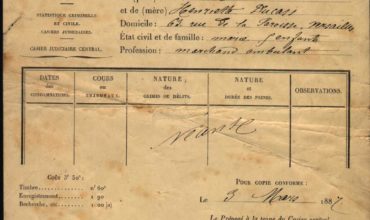 et de (mère) Henriette
STATISTIQUE CRIMINELLE
ET CIVILE.
CASIERS JUDICIAIRES.
CASIER JUDICIAIRE CENTRAL.
Domicile: 63 rue de la Versailles
État civil et de famille: marié enfants
Profession: marchand ambulant
DATES des CONDAMNATIONS. COURS ou TRIBUNAUX. NATURE des CRIMES OU DÉLITS. NATURE et DURÉE DES PEINES. OBSERVATIONS.
Néant
Coût 3f 50c:
Timbre,
Enregistrement,
Recherche, etc.
POUR COPIE CONFORME:
Le 3 Mars 1887
Le Préposé à la tenue du Casier central